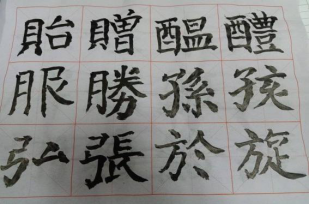 貽贈醞醴
服勝孫孩
弘張於旋